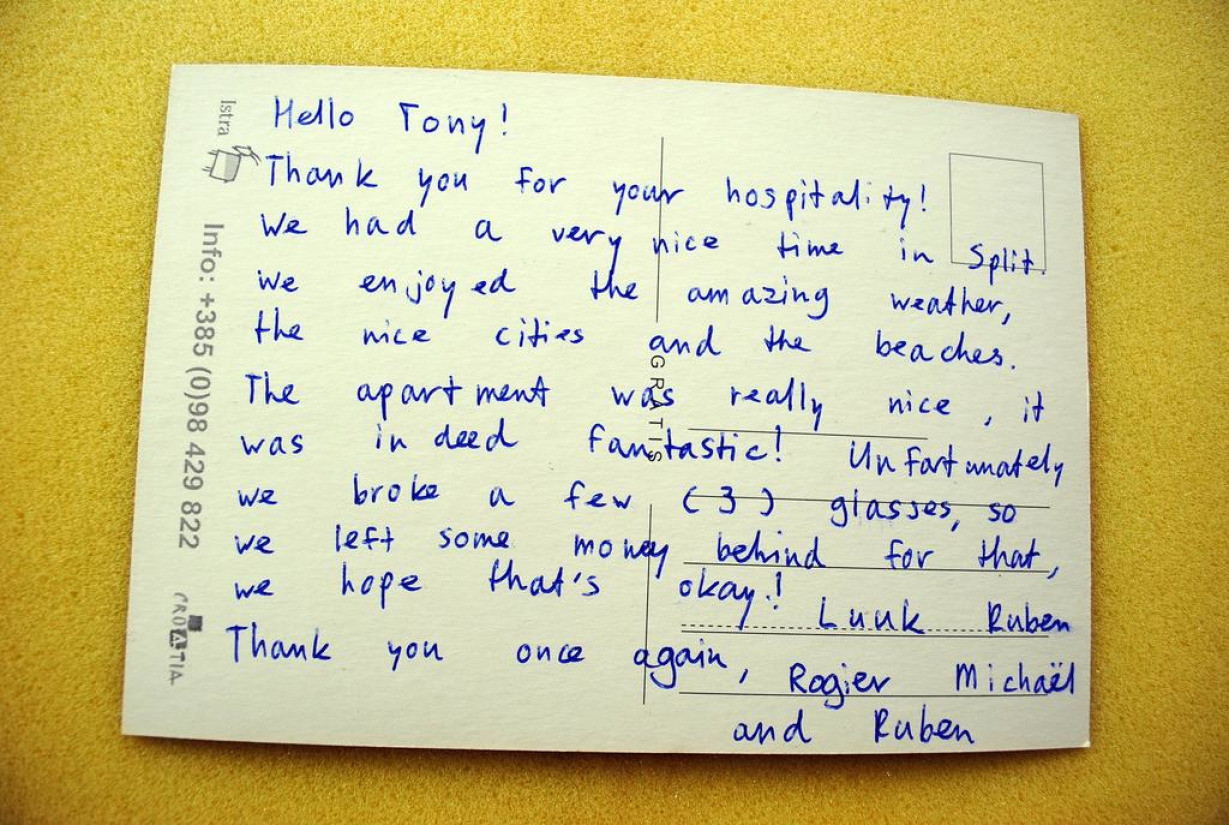 Hello Tony!
Thank you for your hospitality!
We had a very nice time in Split.
We enjoyed the amazing weather,
the nice cities and the beaches.
The apartment was really nice, it
was indeed fantastic! Unfortunately
we broke a few (3) glasses, so
we left some money behind for that,
we hope that's okay!
Thank you once again,
Luuk Ruben
Rogier Michaël
and Ruben
Istra
Info: +385 (0)98 429 822
CROATIA
GRATIS